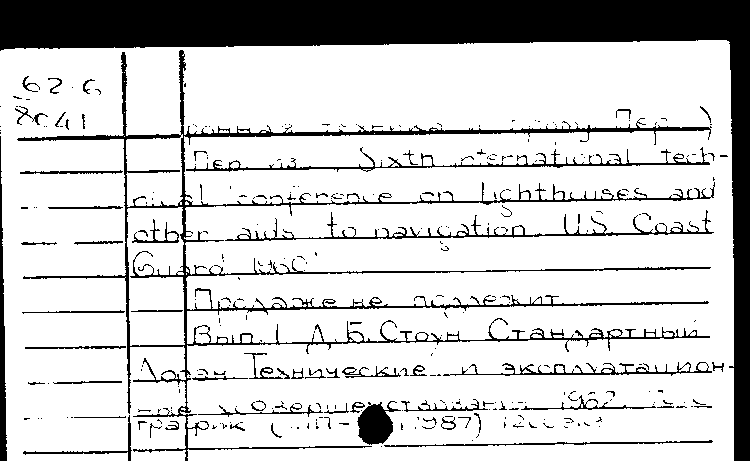 62.6
8С41
ронная техника и Пер.)
Пер. из Sixth international tech-
nical conference on lighthouses and
other aids to navigation. U.S. Coast
Guard, 1960
Продаже не подлежит.
Вып. 1 Д.Б. Стоун Стандартный
Лоран Технические и эксплуатацион-
ные усовершенствования 1962.
график 1987)